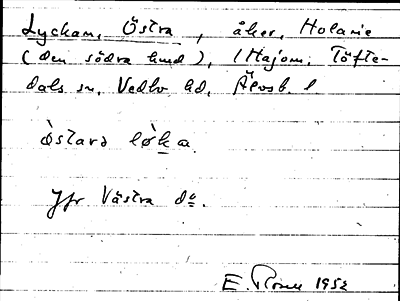 Lyckan, Östra, åker, Holane
(den södra hmd), 1 Majom, Töfte-
dals sn, Vedbo hd, Älvsb. l
òstarə lø̀ka
Jfr Västra do.
E. 1952